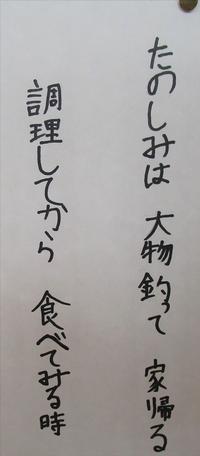 たのしみは 大物釣って 家帰る
調理してから 食べてみる時